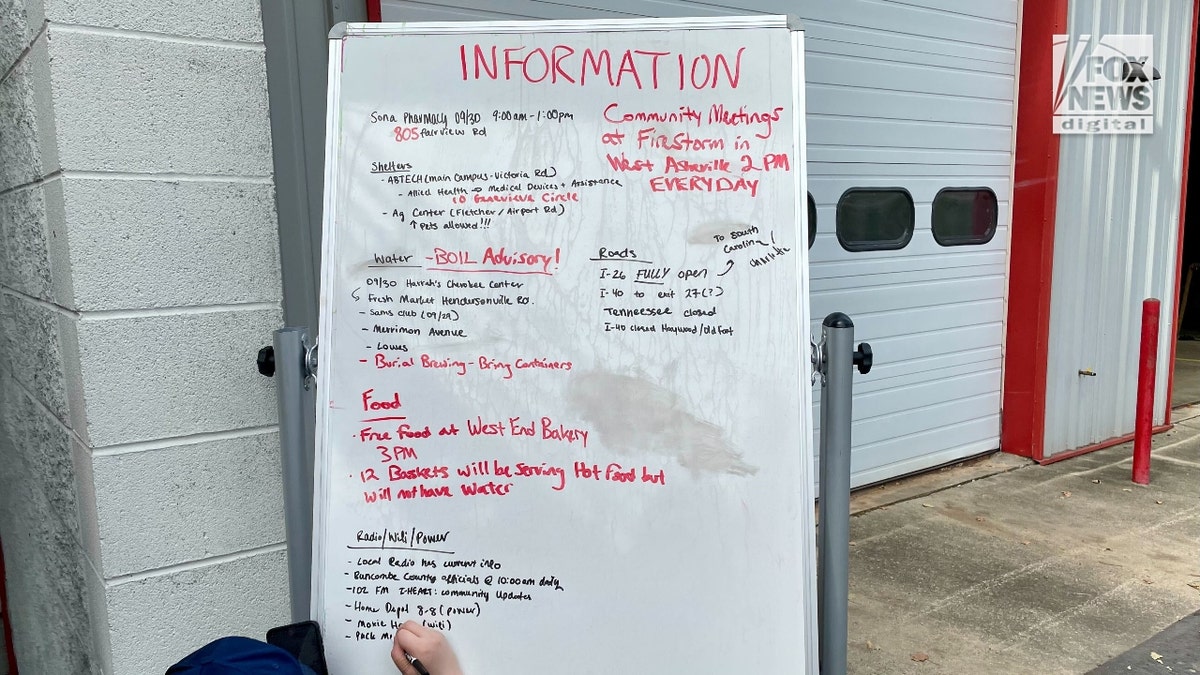 INFORMATION
Sona Pharmacy 09/30 9:00am-1:00pm
805 Fairview Rd
Community Meetings
at Firestorm in
West Asheville 2 PM
EVERYDAY
Shelters
- ABTECH (main campus-Victoria Rd)
- Allied Health → Medical Devices + Assistance
10 Genevieve Circle
- Ag Center (Fletcher/Airport Rd)
↑ Pets allowed!!!
Water - BOIL Advisory!
09/30 Harrah's Cherokee Center
Fresh Market Hendersonville Rd.
- Sams club (09/29)
- Merrimon Avenue
- Lowes
- Burial Brewing - Bring Containers
Roads
I-26 FULLY open → To South
Carolina!
Charlotte
I-40 to exit 27(?)
Tennessee closed
I-40 closed Haywood/Old Fort
Food
· Free food at West End Bakery
3PM
· 12 Baskets will be serving Hot Food but
will not have water
Radio/Wifi/Power
- Local Radio has current info
- Buncombe County officials @ 10:00am daily
- 102 FM I-HEART: community updates
- Home Depot 8-8 (power)
- Moxie (wifi)
- Pack
FOX
NEWS
digital